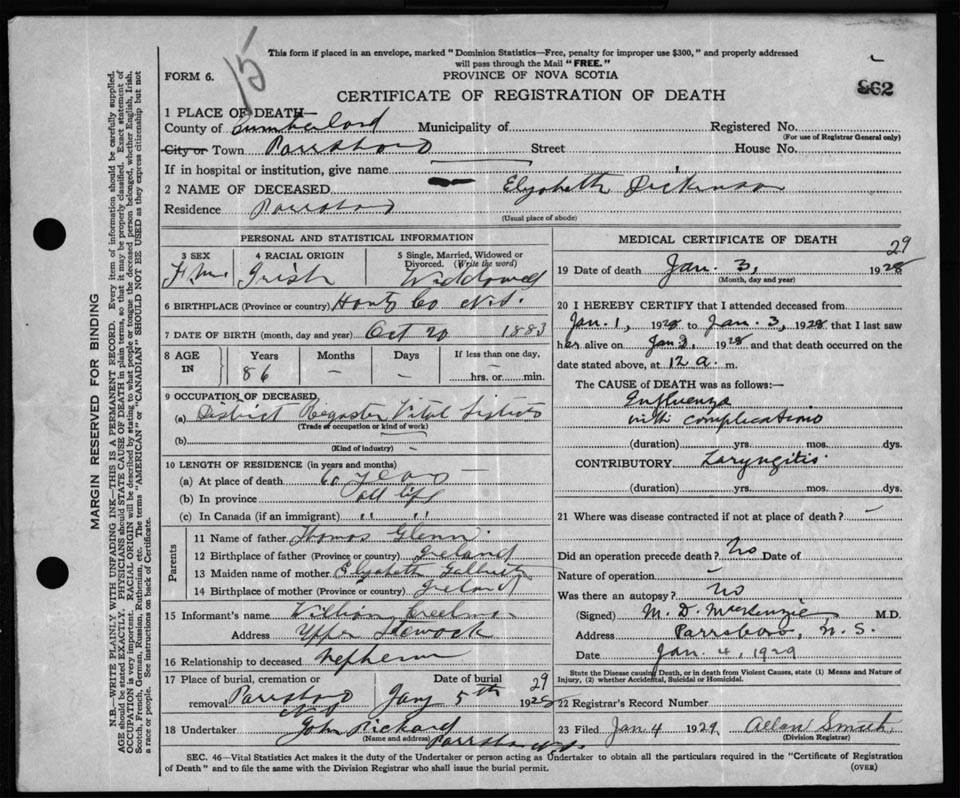 This form if placed in an envelope, marked "Dominion Statistics—Free, penalty for improper use $300," and properly addressed
will pass through the Mail "FREE."
15
862
FORM 6.
PROVINCE OF NOVA SCOTIA
CERTIFICATE OF REGISTRATION OF DEATH
1 PLACE OF DEATH
County of Cumberland Municipality of Registered No.
(For use of Registrar General only)
City or Town Parrsboro Street House No.
If in hospital or institution, give name
2 NAME OF DECEASED Elizabeth Dickinson
Residence Parrsboro
(Usual place of abode)
PERSONAL AND STATISTICAL INFORMATION
3 SEX 4 RACIAL ORIGIN 5 Single, Married, Widowed or
Divorced. (Write the word)
Irish Widdowed
6 BIRTHPLACE (Province or country) Hantz Co N.S.
7 DATE OF BIRTH (month, day and year) Oct 20 1883
8 AGE IN Years Months Days If less than one day,
86 — — hrs. or min.
9 OCCUPATION OF DECEASED,
(a) District Register Vital
(Trade of occupation or kind of work)
(b)
(Kind of industry) —
10 LENGTH OF RESIDENCE (in years and months)
(a) At place of death 60 years —
(b) In province all life
(c) In Canada (if an immigrant) " "
Parents
11 Name of father Thomas Glenn
12 Birthplace of father (Province or country) Ireland
13 Maiden name of mother Elizabeth
14 Birthplace of mother (Province or country) Ireland
15 Informant's name William Creelman
Address Upper
16 Relationship to deceased
17 Place of burial, cremation or removal Date of burial
Parrsboro NS Jany 5th 1928 29
18 Undertaker John Pickard
(Name and address) Parrsboro N.S.
MEDICAL CERTIFICATE OF DEATH
19 Date of death Jan. 3, 1928 29
(Month, day and year)
20 I HEREBY CERTIFY that I attended deceased from
Jan. 1, 1928 to Jan. 3, 1928 that I last saw
her alive on Jan 2, 1928 and that death occurred on the
date stated above, at 12 a. m.
The CAUSE OF DEATH was as follows:—
Influenza
with complications
(duration) yrs. mos. dys.
CONTRIBUTORY Laryngitis
(duration) yrs. mos. dys.
21 Where was disease contracted if not at place of death? —
Did an operation precede death? No Date of
Nature of operation
Was there an autopsy? No
(Signed) M. D. MacKenzie M.D.
Address Parrsboro, N.S.
Date Jan. 4, 1929
State the Disease causing Death, or in death from Violent Causes, state (1) Means and Nature of
Injury, (2) whether Accidental, Suicidal or Homicidal.
22 Registrar's Record Number
23 Filed Jan 4 1929 Allan Smith
(Division Registrar)
SEC. 46—Vital Statistics Act makes it the duty of the Undertaker or person acting as Undertaker to obtain all the particulars required in the "Certificate of Registration
of Death" and to file the same with the Division Registrar who shall issue the burial permit. (OVER)
MARGIN RESERVED FOR BINDING
N.B.—WRITE PLAINLY WITH UNFADING INK—THIS IS A PERMANENT RECORD. Every item of information should be carefully supplied.
AGE should be stated EXACTLY. PHYSICIANS should STATE CAUSE OF DEATH in plain terms, so that it may be properly classified. Exact statement of
OCCUPATION is very important. RACIAL ORIGIN will be described by stating to what people or tongue the deceased person belonged, whether English, Irish,
Scotch, French, German, Russian, Ruthenian, etc. The terms "AMERICAN" or "CANADIAN" SHOULD NOT BE USED as they express citizenship but not
a race or people. See instructions on back of Certificate.